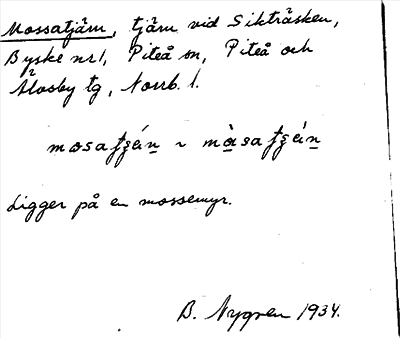 Mossatjärn, tjärn vid Sikträsken,
Byske nr 1, Piteå sn, Piteå och
Älvsby tg, Norrb. l.
Ligger på en mossemyr.
B. Nygren 1934.